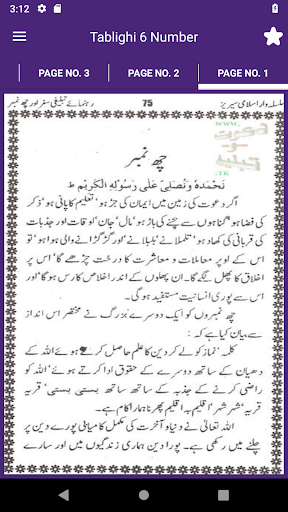 3:12
Tablighi 6 Number
PAGE NO. 3
PAGE NO. 2
PAGE NO. 1
سلسلہ وار اسلامی سیریز
75
رہنمائے تبلیغی سفر اور چھ نمبر
WWW.
.TK
چھ نمبر
نَحْمَدُهٗ وَنُصَلِّیْ عَلٰی رَسُوْلِهِ الْكَرِیْمِ ط
اگر دعوت کی زمین میں ایمان کی جڑ ہو' تعلیم کا پانی ہو' ذکر
کی فضا ہو' گناہوں سے بچنے کی باڑ ہو' مال' جان' اوقات اور جذبات
کی قربانی کی کھاد ہو' تلملانے' بلبلانے' اور گڑگڑانے والی ہوا ہو' تو
اس کے اوپر معاملات و معاشرت کا درخت چڑھے گا' اس پر
اخلاق کا پھل لگے گا۔ ان پھلوں کے اندر اخلاص کا رس ہوگا' اور
اس سے پوری انسانیت مستفید ہوگی۔
چھ نمبروں کو ایک دوسرے بزرگ نے مختصر اس انداز
سے بیان کیا ہے کہ:
کلمہ' نماز کو لے کر دین کا علم حاصل کرتے ہوئے اللہ کے
دھیان کے ساتھ دوسرے کے حقوق ادا کرتے ہوئے' اللہ کو
راضی کرنے کے جذبہ کے ساتھ ساتھ بستی بستی' قریہ
قریہ' شہر شہر' اقلیم بہ اقلیم پھرنا ہمارا کام ہے۔
اللہ تعالیٰ نے دنیا و آخرت کی مکمل کامیابی پورے دین پر
چلنے میں رکھی ہے۔ پورا دین ہماری زندگیوں میں اور سارے